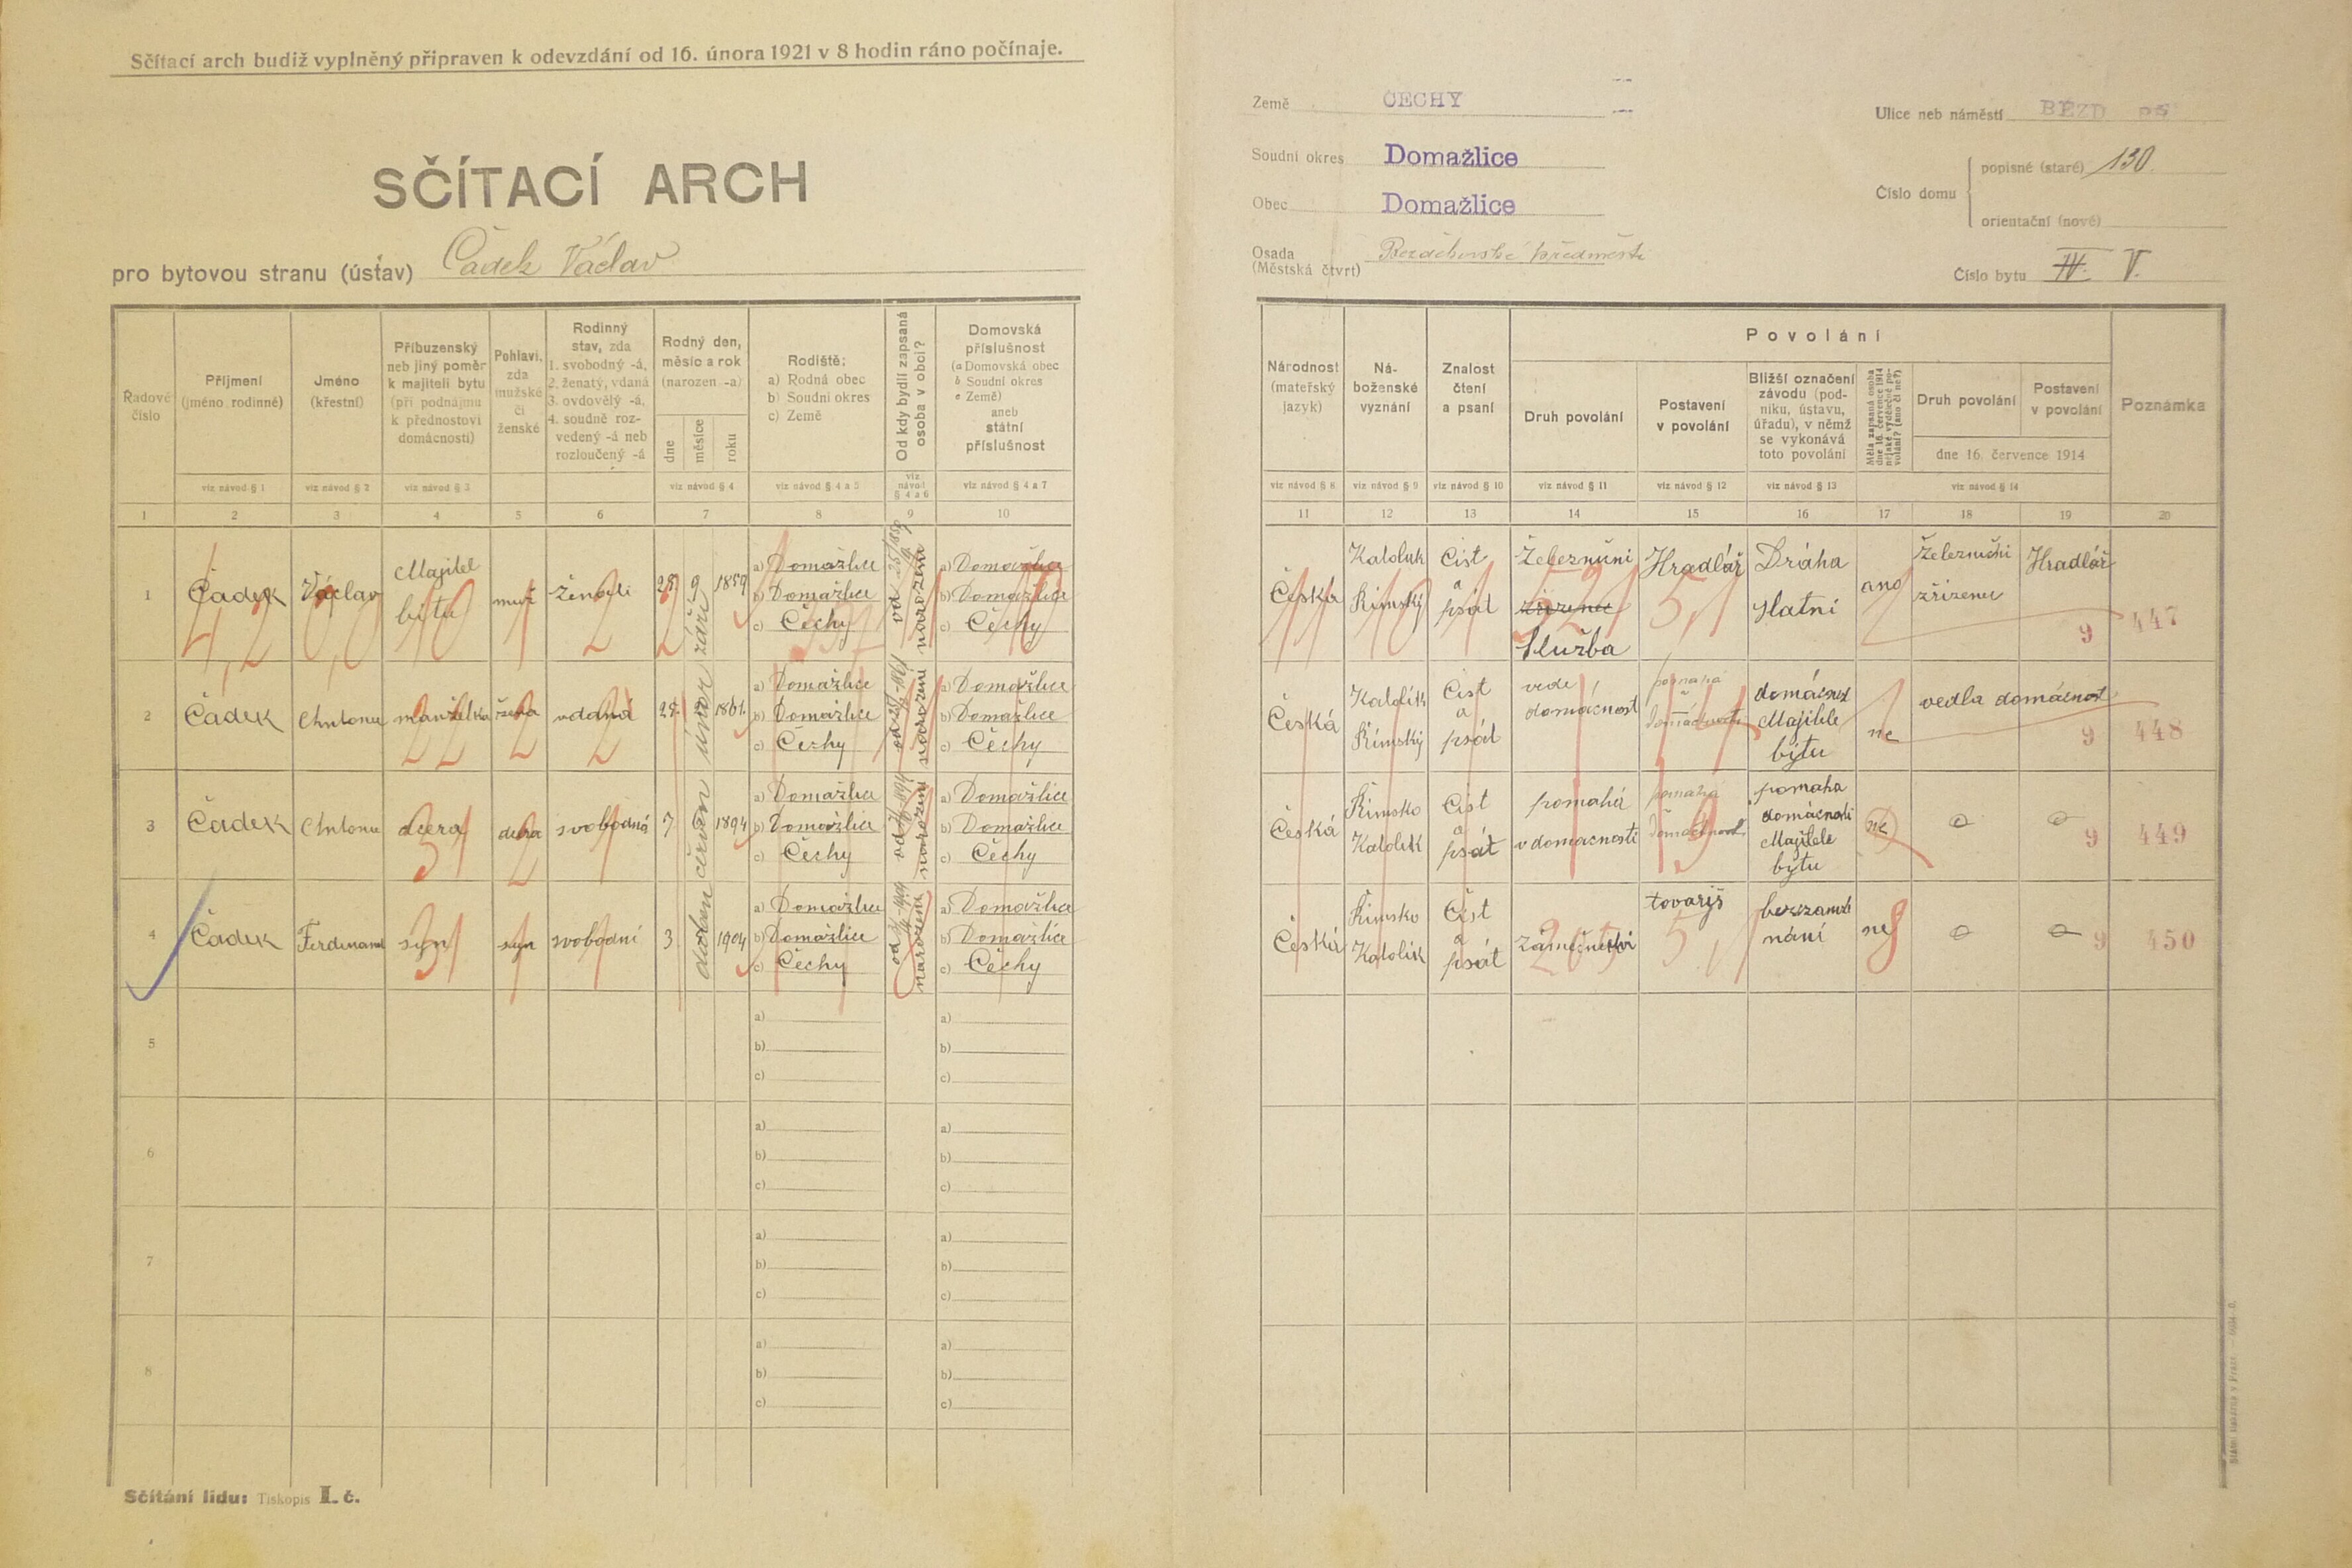 Sčítací arch budiž vyplněný připraven k odevzdání od 16. února 1921 v 8 hodin ráno počínaje.
SČÍTACÍ ARCH
pro bytovou stranu (ústav) Čadek Václav
Země ČECHY
Soudní okres Domažlice
Obec Domažlice
Osada
(Městská čtvrt)
předměstí
Ulice neb náměstí
Číslo domu
popisné (staré) 130
orientační (nové)
Číslo bytu IV. V.
Řadové
číslo
Příjmení
(jméno rodinné)
Jméno
(křestní)
Příbuzenský
neb jiný poměr
k majiteli bytu
(při podnájmu
k přednostovi
domácnosti)
Pohlaví,
zda
mužské
či
ženské
Rodinný
stav, zda
1. svobodný -á,
2. ženatý, vdaná
3. ovdovělý -á,
4. soudně roz-
vedený -á neb
rozloučený -á
Rodný den,
měsíc a rok
(narozen -a)
dne
měsíce
roku
Rodiště:
a) Rodná obec
b) Soudní okres
c) Země
Od kdy bydlí zapsaná
osoba v obci?
Domovská
příslušnost
(a Domovská obec
b Soudní okres
c Země)
aneb
státní
příslušnost
Národnost
(mateřský
jazyk)
Ná-
boženské
vyznání
Znalost
čtení
a psaní
Povolání
Druh povolání
Postavení
v povolání
Bližší označení
závodu (pod-
niku, ústavu,
úřadu), v němž
se vykonává
toto povolání
Měla zapsaná osoba
dne 16. července 1914
nějaké výdělečné po-
volání? (ano či ne?)
Druh povolání
Postavení
v povolání
dne 16. července 1914
Poznámka
viz návod § 1
viz návod § 2
viz návod § 3
viz návod § 4
viz návod § 4 a 5
viz
návod
§ 4 a 6
viz návod § 4 a 7
viz návod § 8
viz návod § 9
viz návod § 10
viz návod § 11
viz návod § 12
viz návod § 13
viz návod § 14
1 2 3 4 5 6 7 8 9 10
11 12 13 14 15 16 17 18 19 20
1 Čadek Václav
Majitel
bitu
muž
28. 9 1859
září
a) Domažlice
b) Domažlice
c) Čechy
narození
a) Domažlice
b) Domažlice
c) Čechy
Česká
Katolik
Římský
Číst
a
psát
Železniční
zřízenec
služba
Hradlář
Dráha
statní
ano
Železniční
zřízenec
Hradlář
9 447
2 Čadek Antonie manželka žena vdaná
únor 1861.
a) Domažlice
b) Domažlice
c) Čechy
narození
a) Domažlice
b) Domažlice
c) Čechy
Česká
Katolík
Římský
Číst
a
psát
vede
domácnost
pomahá
v
domácnosti
domácnost
Majitele
bytu
ne
vedla domácnost
9 448
3 Čadek Antonie dcera dcera svobodná 7 červen 1894
a) Domažlice
b) Domažlice
c) Čechy
narození
a) Domažlice
b) Domažlice
c) Čechy
Česká
Římsko
Katolík
Číst
a
psát
pomahá
v domacnosti
pomaha
pomaha
domácnosti
Majitele
bytu
ne
9 449
4 Čadek Ferdinand syn syn svobodní 3 duben 1904
a) Domažlice
b) Domažlice
c) Čechy
narození
a) Domažlice
b) Domažlice
c) Čechy
Česká
Římsko
Katolík
Číst
a
psát
Zámečnictví
tovaryš
bezzaměst
nání
ne
9 450
5
a)
b)
c)
a)
b)
c)
6
a)
b)
c)
a)
b)
c)
7
a)
b)
c)
a)
b)
c)
8
a)
b)
c)
a)
b)
c)
Sčítání lidu: Tiskopis I. č.